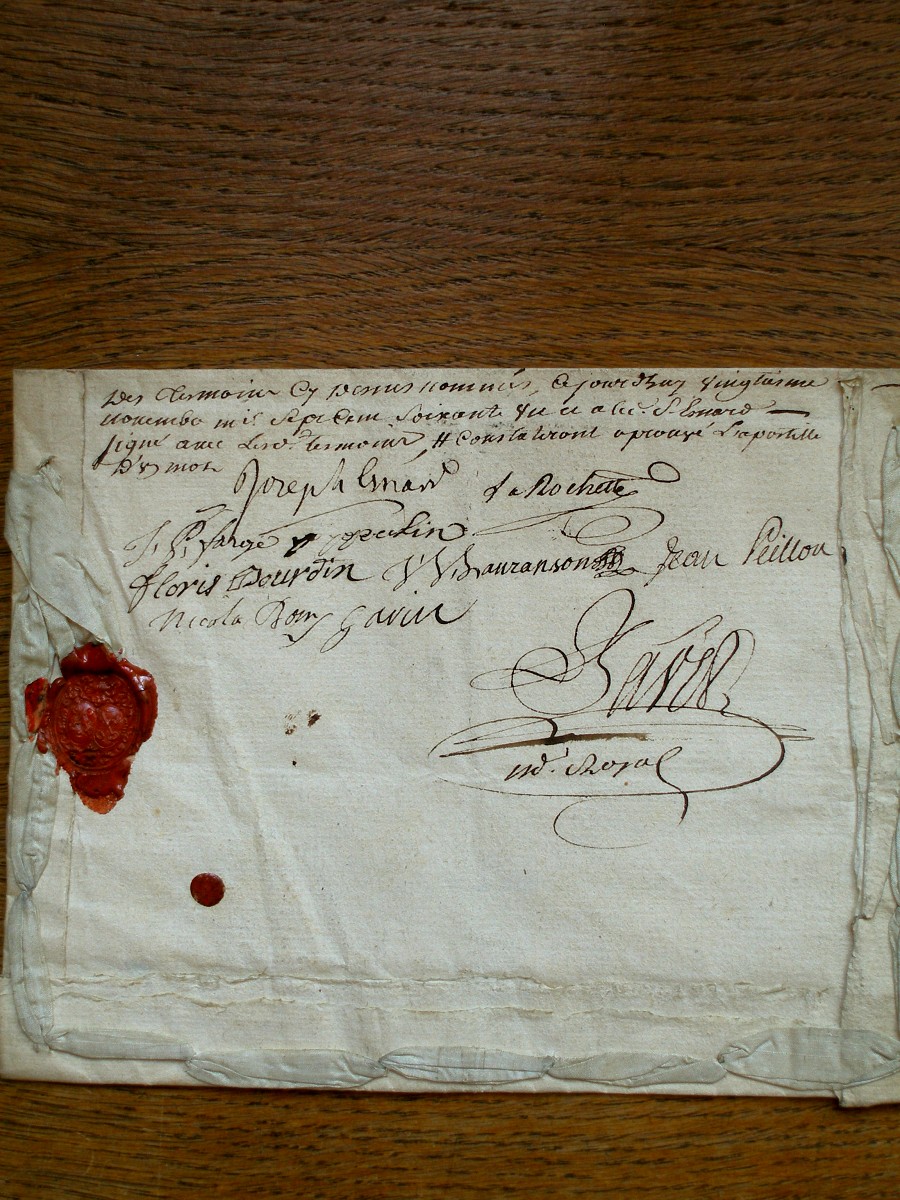 des termoins cy dessus nommés, ce jourdhuy vingtiesme
novembre mil sept cent soixante
signé avec lesd. termoins # constateront aprouvé l'apostille
d'un mot
Joseph Emard la Rochette
J. P. farge
floris Dourdin Vauranson Jean Peillon
Nicola Gavin
Bavin
nd. Royal